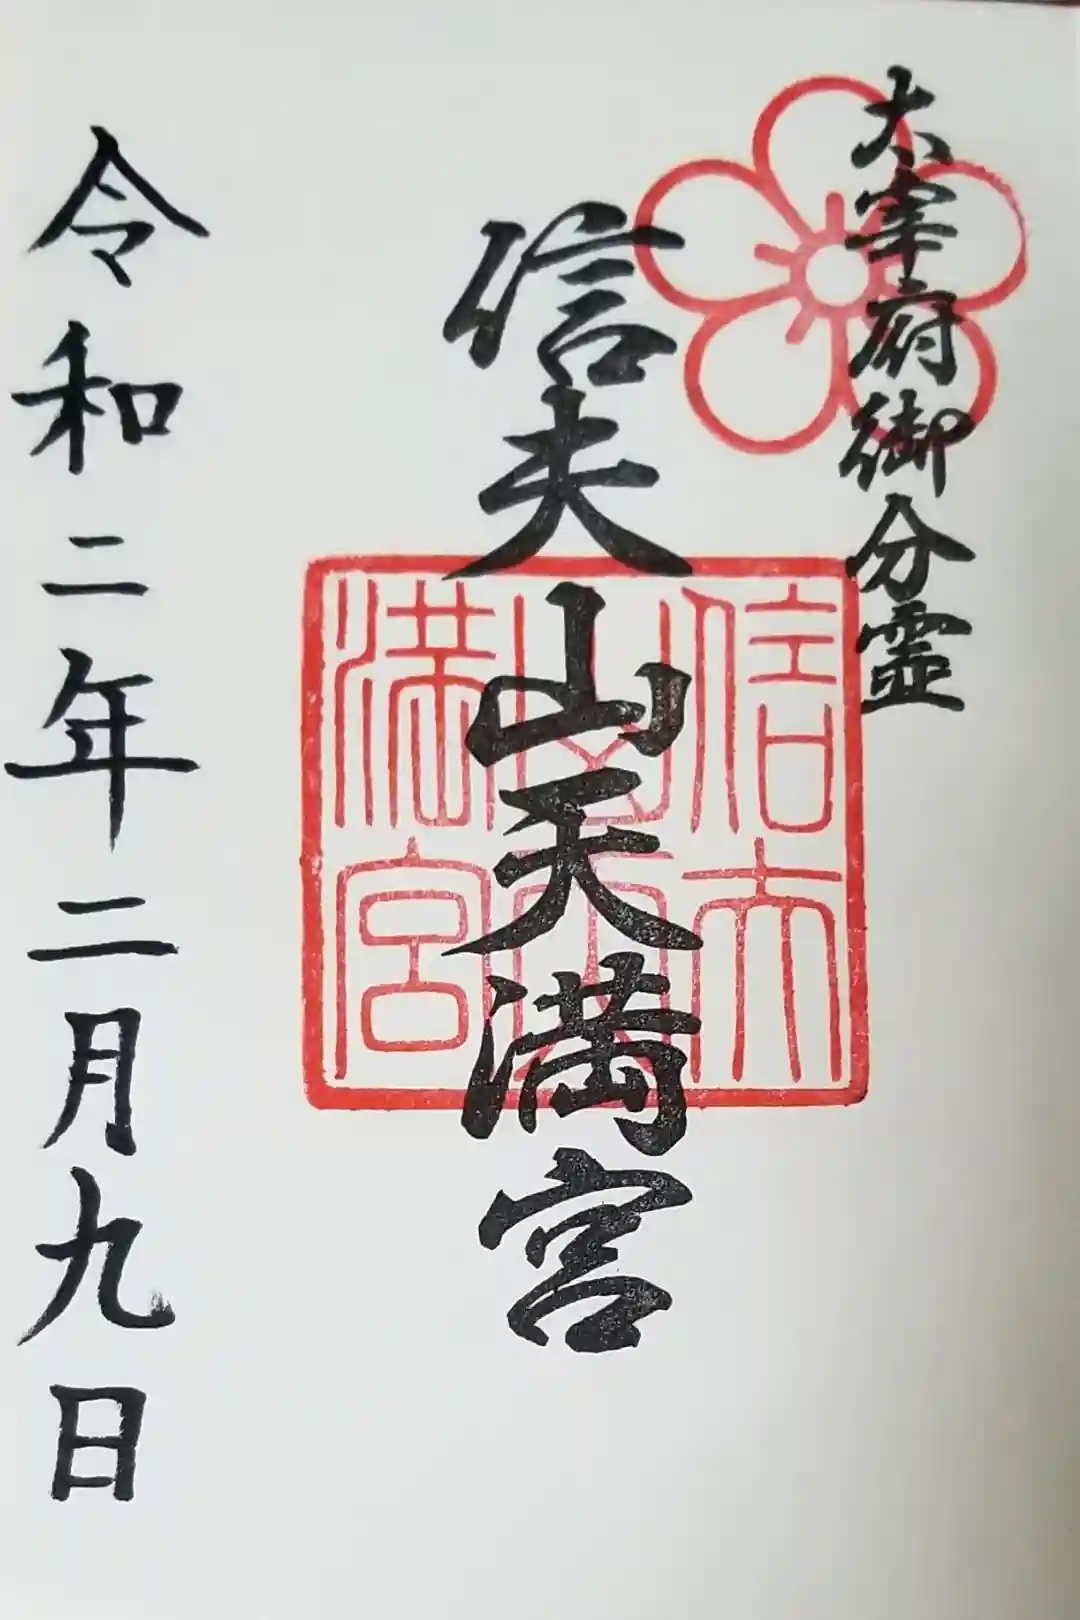 太宰府御分霊
信夫山天満宮
信夫
山天
満宮
令和二年二月九日